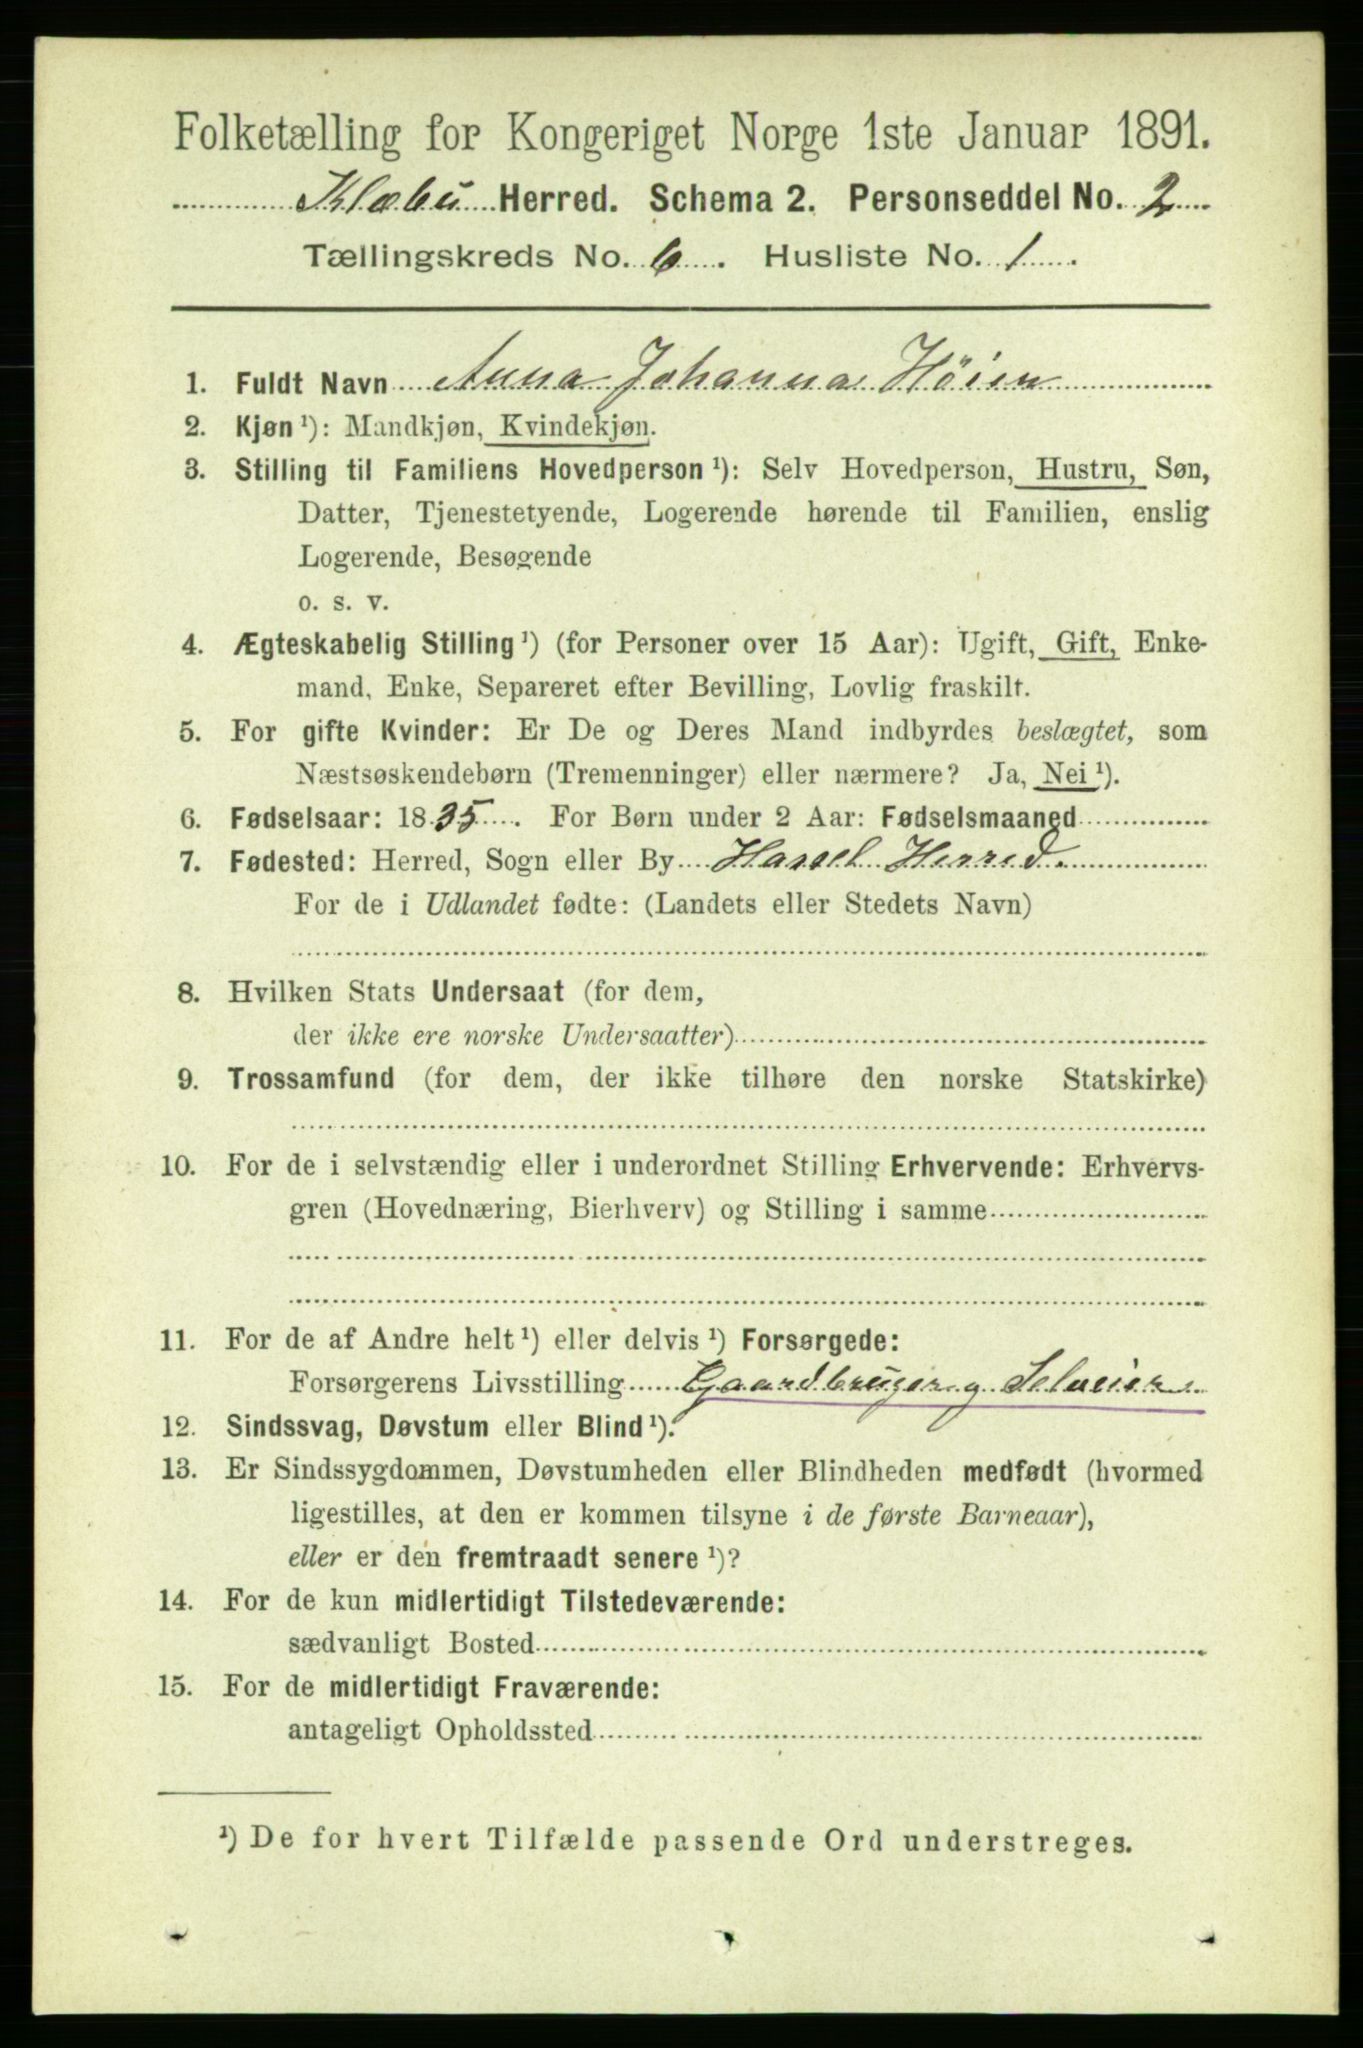 Folketælling for Kongeriget Norge 1ste Januar 1891.
Klæbu Herred. Schema 2. Personseddel No. 2
Tællingskreds No. 6. Husliste No. 1.
1. Fuldt Navn Anna Johanna Höien
2. Kjøn ¹): Mandkjøn, Kvindekjøn.
3. Stilling til Familiens Hovedperson ¹): Selv Hovedperson, Hustru, Søn,
Datter, Tjenestetyende, Logerende hørende til Familien, enslig
Logerende, Besøgende
o. s. v.
4. Ægteskabelig Stilling ¹) (for Personer over 15 Aar): Ugift, Gift, Enke-
mand, Enke, Separeret efter Bevilling, Lovlig fraskilt.
5. For gifte Kvinder: Er De og Deres Mand indbyrdes beslægtet, som
Næstsøskendebørn (Tremenninger) eller nærmere? Ja, Nei ¹).
6. Fødselsaar: 1835. For Børn under 2 Aar: Fødselsmaaned
7. Fødested: Herred, Sogn eller By Hassel Herred.
For de i Udlandet fødte: (Landets eller Stedets Navn)
8. Hvilken Stats Undersaat (for dem,
der ikke ere norske Undersaatter)
9. Trossamfund (for dem, der ikke tilhøre den norske Statskirke)
10. For de i selvstændig eller i underordnet Stilling Erhvervende: Erhvervs-
gren (Hovednæring, Bierhverv) og Stilling i samme
11. For de af Andre helt ¹) eller delvis ¹) Forsørgede:
Forsørgerens Livsstilling Gaardbruger g. Selveier
12. Sindssvag, Døvstum eller Blind ¹).
13. Er Sindssygdommen, Døvstumheden eller Blindheden medfødt (hvormed
ligestilles, at den er kommen tilsyne i de første Barneaar),
eller er den fremtraadt senere ¹)?
14. For de kun midlertidigt Tilstedeværende:
sædvanligt Bosted
15. For de midlertidigt Fraværende:
antageligt Opholdssted
¹) De for hvert Tilfælde passende Ord understreges.